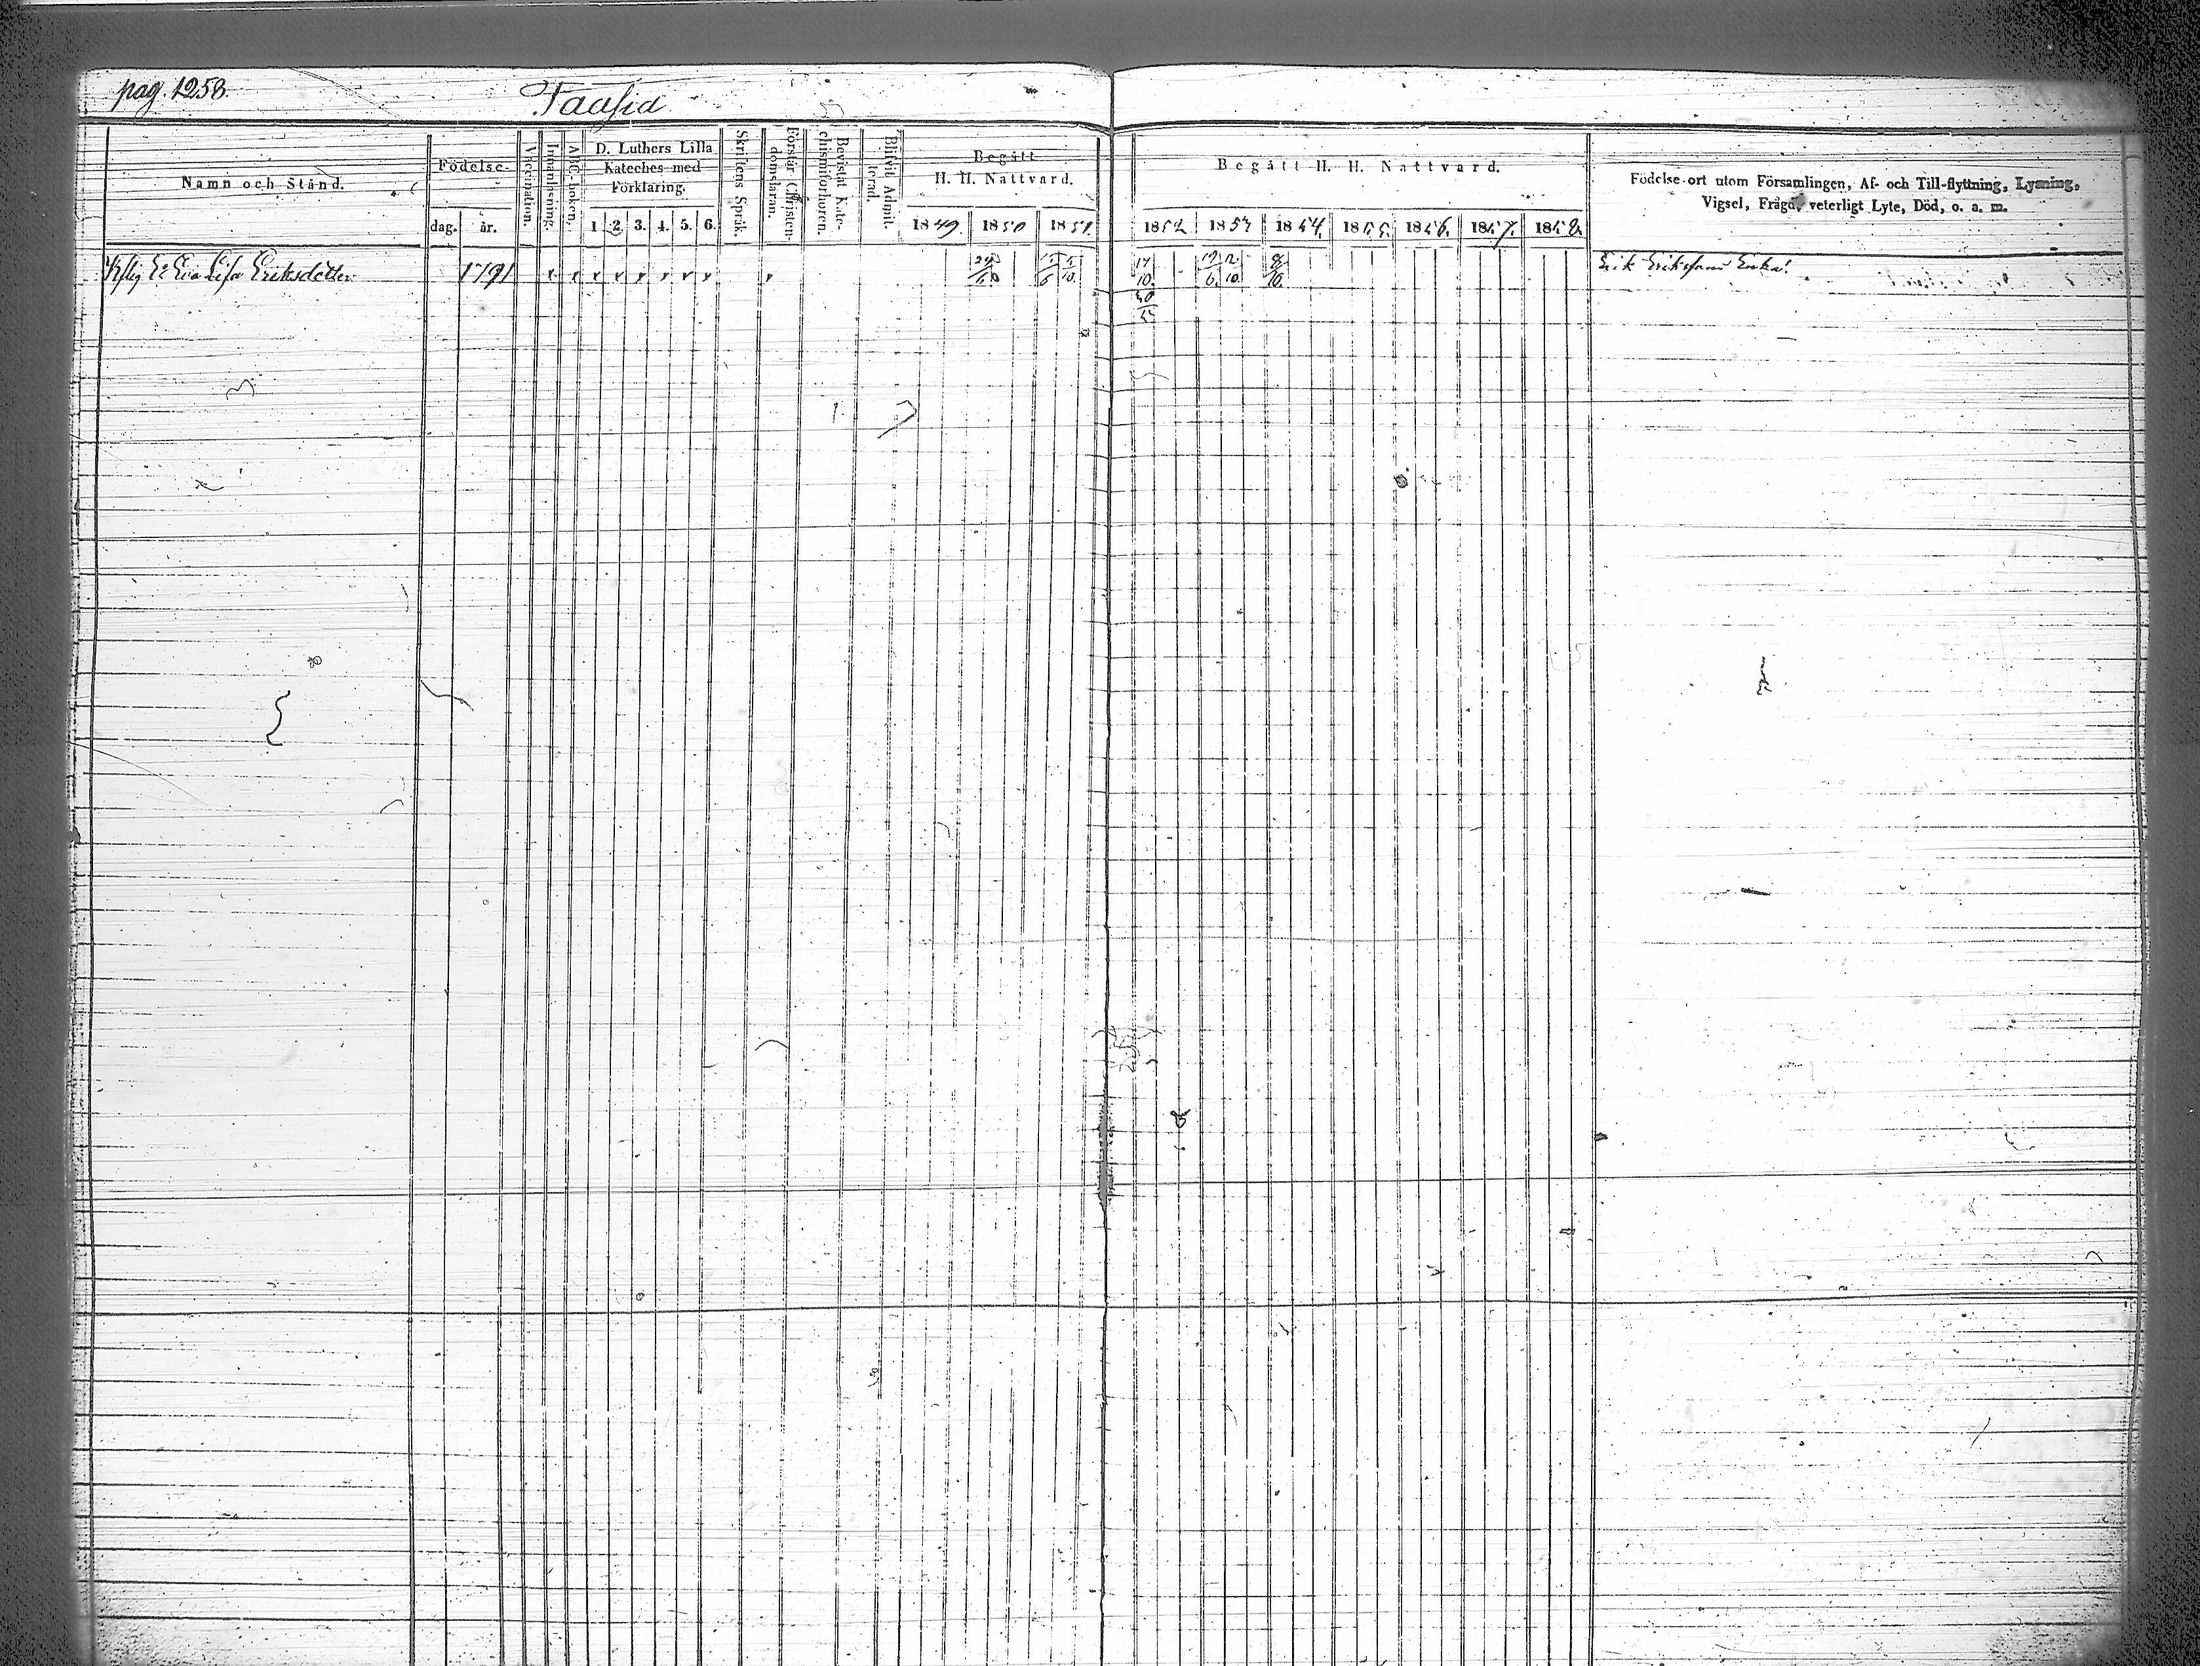 pag. 1258.
Namn och Stånd.
Födelse-
dag. år.
Vaccination.
Innanläsning.
ABC-boken.
D. Luthers Lilla
Kateches med
Förklaring.
1 2. 3. 4. 5. 6.
Skriftens Språk.
Förstår Christen-
domsläran.
Bevistat Kate-
chismiförhören.
Blifvit Admit-
terad.
Begått
H. H. Nattvard.
1849. 1850 1851.
Begått H. H. Nattvard.
1852. 1853 1854. 1855. 1856. 1857. 1858.
Födelse-ort utom Församlingen, Af- och Till-flyttning, Lysning,
Vigsel, Frägd, veterligt Lyte, Död, o. a. m.
Eva Lisa Eriksdotter 1791
Erik Erikssons Enka.